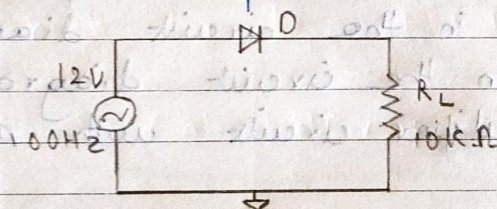 D
12V
100HZ
RL
10K Ω